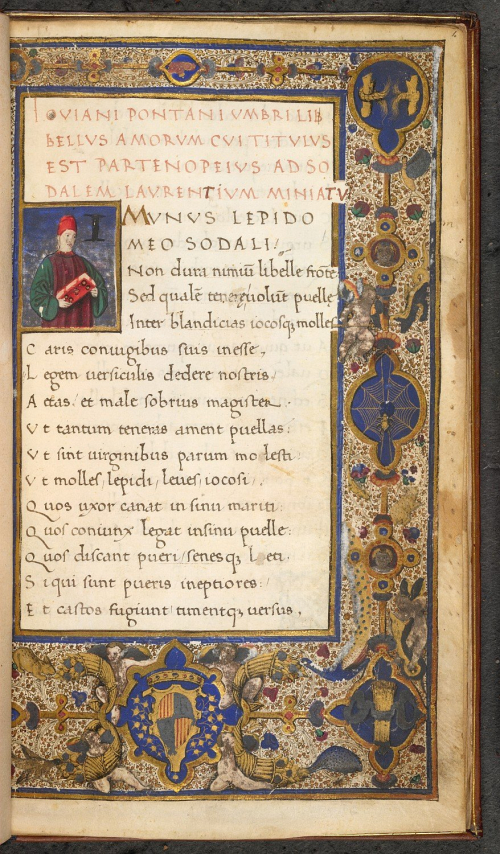 IOVIANI PONTANI UMBRI LIB
BELLUS AMORUM CUI TITULUS
EST PARTENOPEIUS AD SO
DALEM LAURENTIUM MINIATU
I MUNUS LEPIDO
MEO SODALI /
Non dura nimiū libelle frōte
Sed qualē teneręuolūt puelle
Inter blandicias iocosq; molles
C aris coniugibus suis inesse,
L egem uersiculis dedere nostris.
A etas / et male sobrius magister.
V t tantum teneras ament puellas:
V t sint uirginibus parum molesti.
V t molles / lepidi / leues / iocosi /.
Q uos uxor canat in sinu mariti:
Q uos coniunx legat insinu puelle:
Q uos discant pueri / senesq; leti.
S i qui sunt pueris ineptiores:
E t castos fugiunt / timentq; uersus,